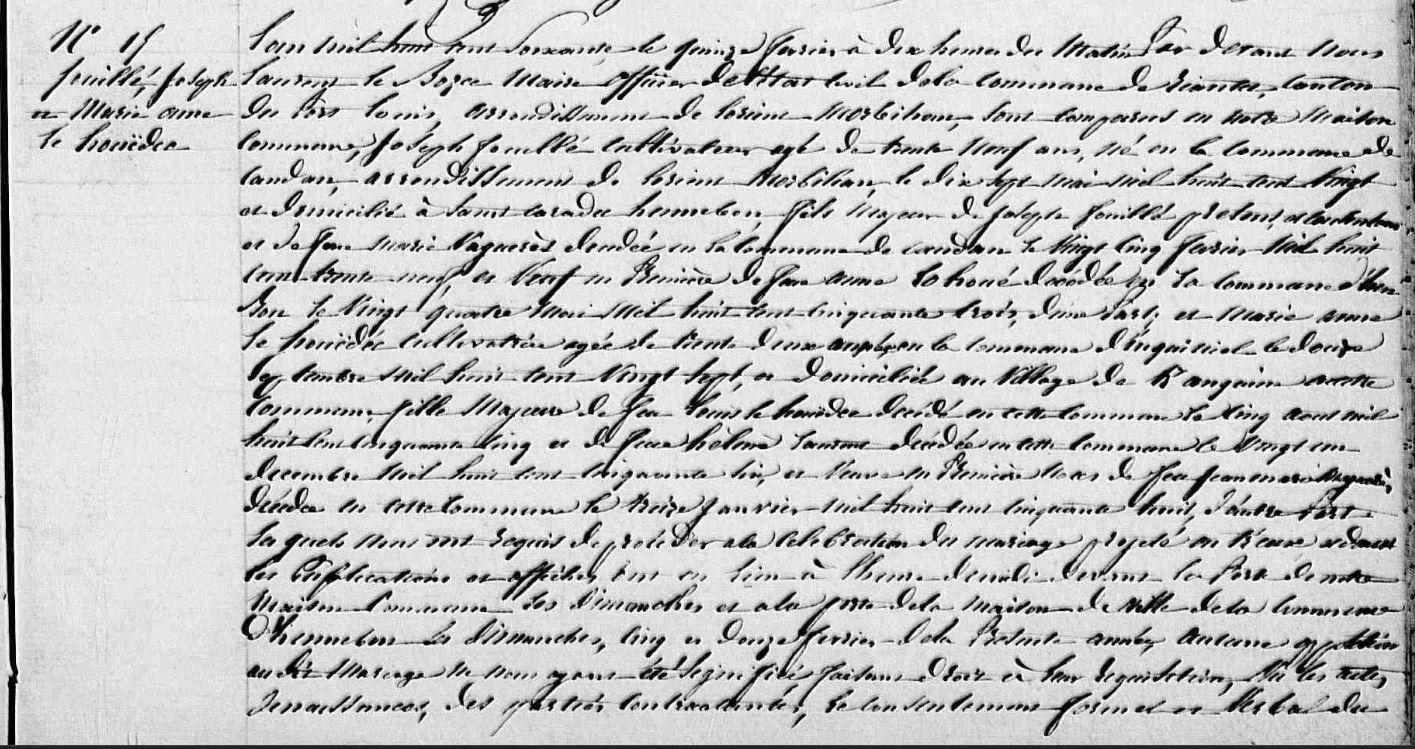 N° 15
fouillé, Joseph
et Marie anne
le houëdec
L'an mil huit cent soixante, le quinze fevrier à dix heures du matin Par devant Nous
Laurent le Maire officier de l'Etat Civil de la commune de riantec, canton
du Port Louis, arrondissement de Lorient Morbihan, sont comparus en notre Maison
Commune, Joseph fouillé Cultivateur agé de trente neuf ans, né en la commune de
Caudan, arrondissement de Lorient Morbihan, le dix sept mai mil huit cent vingt
et domicilié à Saint Caradec hennebon, fils Majeur de Joseph fouillé présent, et consentant
et de feue Marie décédée en la commune de caudan le Vingt Cinq fevrier Mil huit
cent trente neuf, et Veuf en Premiere de feue anne décédée en la commune d'henne
bon le Vingt quatre Mai Mil huit cent cinquante trois, d'une Part; et Marie anne
le houëdec Cultivatrice agée de trente deux ans, née en la commune d'inguiniel le douze
septembre Mil huit cent Vingt sept, et domiciliée au Village de en cette
commune, fille Majeure de feu Louis le houëdec décédé en cette commune le cinq aout mil
huit cent cinquante cinq et de feue hélène Laurent décédée en cette commune le Vingt un
decembre Mil huit cent cinquante six, et Veuve en Premières Noces de feu Jean marie
décédé en cette commune le treize Janvier mil huit cent cinquante huit, d'autre Part
Lesquels nous ont requis de procéder a la Célébration du mariage projeté entreeux et dont
les Publications et affiches, ont eu lieu à l'heure de midi devant la Porte de notre
Maison Commune les Dimanches et a la porte de la Maison de Ville de la Commune
d'hennebon les dimanches, cinq et douze fevrier de la Présente année, aucune opposition
audit Mariage ne nous ayant été signifiée faisant droit à leur requisition, Vu les actes
de naissances, des parties Contractantes, le consentement formel et Verbal du